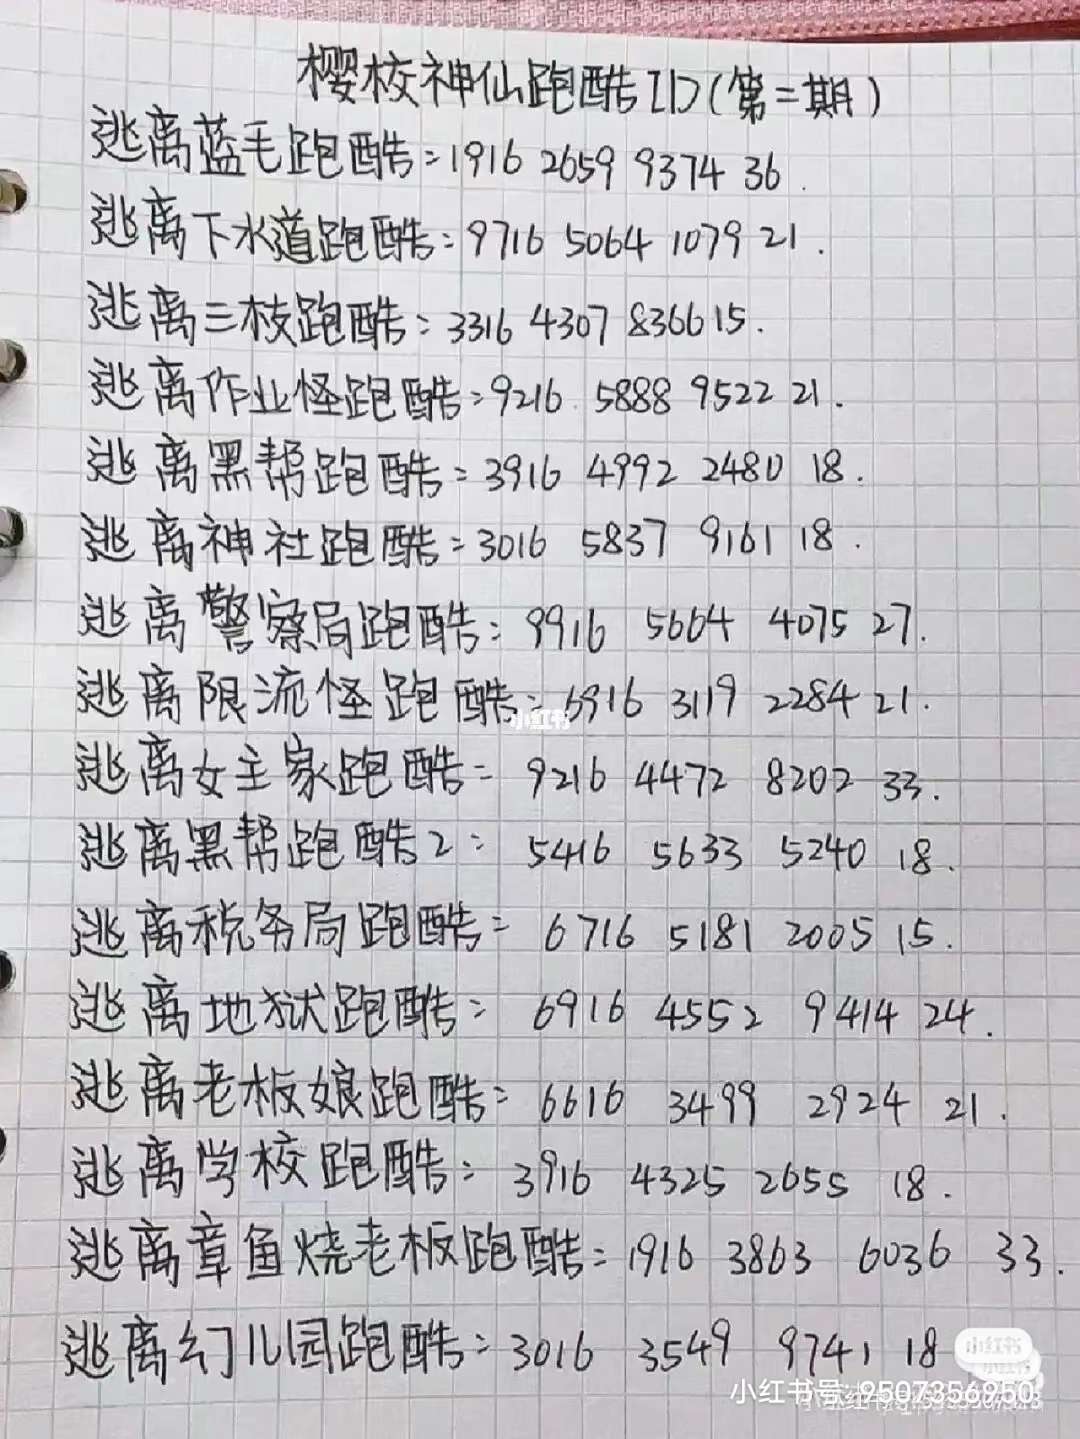 樱校神仙跑酷ID(第二期)
逃离蓝毛跑酷:1916 2659 9374 36.
逃离下水道跑酷:9716 5064 1079 21.
逃离三枝跑酷:3316 4307 8366 15.
逃离作业怪跑酷:9216 5888 9522 21.
逃离黑帮跑酷:3916 4992 2480 18.
逃离神社跑酷:3016 5837 9161 18.
逃离警察局跑酷:9916 5664 4075 27.
逃离限流怪跑酷:6916 3119 2284 21.
小红书
逃离女主家跑酷:9216 4472 8202 33.
逃离黑帮跑酷2:5416 5633 5240 18.
逃离税务局跑酷:6716 5181 2005 15.
逃离地狱跑酷:6916 4552 9414 24.
逃离老板娘跑酷:6616 3499 2924 21.
逃离学校跑酷:3916 4325 2655 18.
逃离章鱼烧老板跑酷:1916 3863 6036 33.
逃离幻儿园跑酷:3016 3549 9741 18
小红书
小红书号: 9507356950